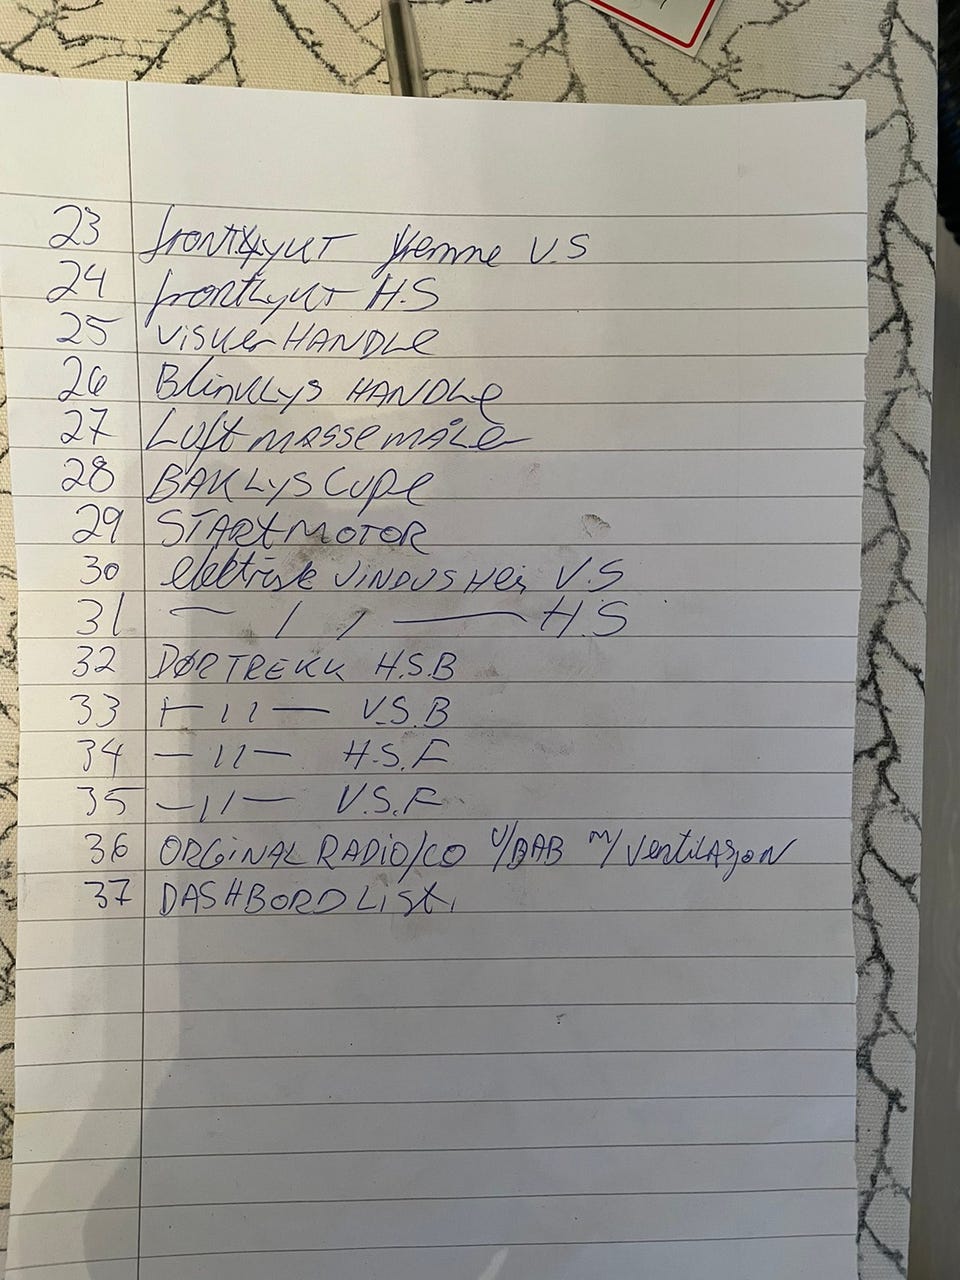 23 frontlykt fremme V.S
24 frontlykt H.S
25 visker HANDLE
26 Blinklys HANDLE
27 Luftmassemåler
28 BAKLYS Cupe
29 STARTMOTOR
30 elektrisk VINDUSHeis V.S
31 — / / — H.S
32 DØRTREKK H.S.B
33 — 11 — V.S.B
34 — 11 — H.S.F
35 — 11 — V.S.F
36 ORGiNAL RADiO/CD U/DAB m/ventilAsjon
37 DASHBORD List